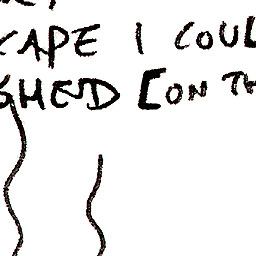 CAPE I COUL
GHED [ON TH